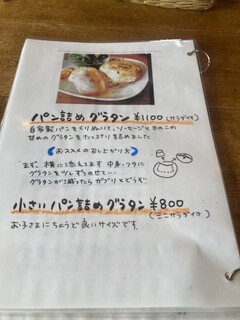 パン詰めグラタン ¥1100(サラダ付き)
自家製パンをくりぬいて、ソーセージときのこの
甘めのグラタンをたっぷり詰めました
おススメの召し上がり方
まず、横に添えてます 中身・フタに
グラタンをつけて
グラタンが減ったらガブリとどうぞ
小さいパン詰めグラタン ¥800
(ミニサラダ付き)
お子さまにちょうど良いサイズです。